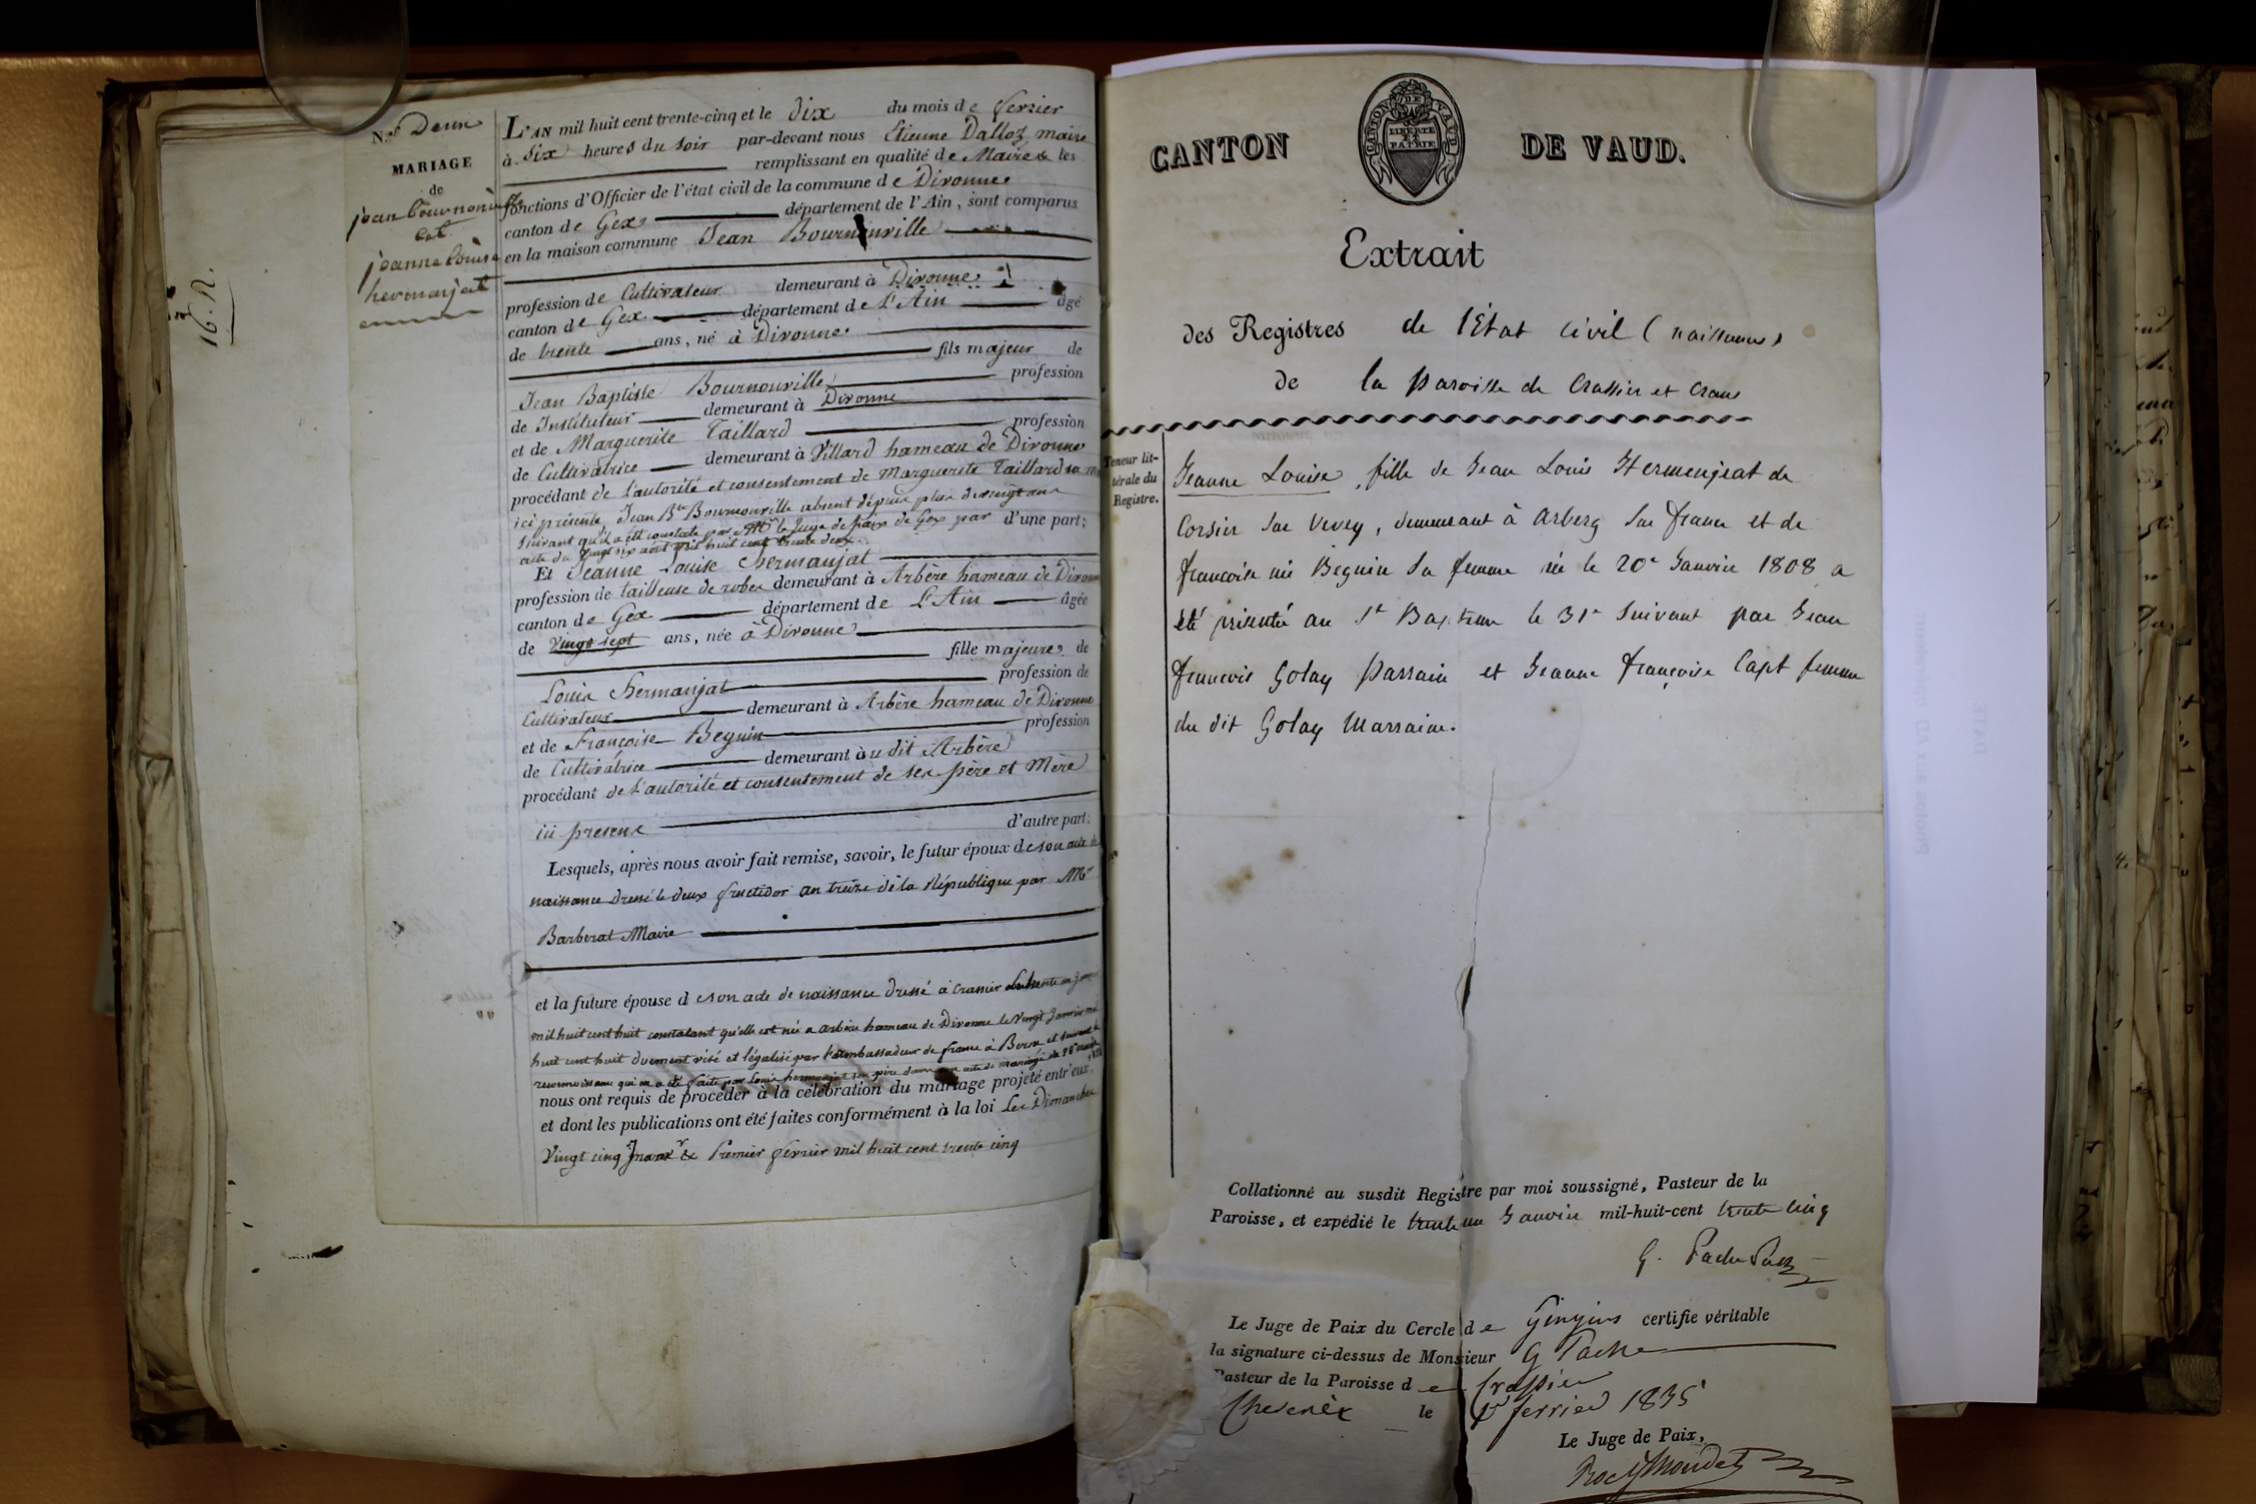 16. R.
N.º Deux
MARIAGE
de
jean bournonville
et
jeanne louise
hermanjat
L'AN mil huit cent trente-cinq et le dix du mois de fevrier
à six heures du soir par-devant nous Etienne Dalloz maire
remplissant en qualité de Maire les
fonctions d'Officier de l'état civil de la commune de Divonne
canton de Gex département de l'Ain, sont comparus
en la maison commune Jean Bournonville
profession de Cultivateur demeurant à Divonne
canton de Gex département de L'Ain âgé
de trente ans, né à Divonne
fils majeur de
Jean Baptiste Bournonville profession
de Instituteur demeurant à Divonne
et de Marguerite Taillard profession
de Cultivatrice demeurant à Villard hameau de Divonne
procédant de l'autorité et consentement de Marguerite Taillard sa
ici présente, Jean Bte Bournonville absent dépuis plus de vingt ans
suivant qu'il a été constaté par Mr le Juge de paix de Gex par d'une part;
acte du vingt six aout mil huit cent trente deux
Et Jeanne Louise Hermanjat
profession de tailleuse de robes demeurant à Arbère hameau de Divonne
canton de Gex département de L'Ain âgée
de vingt sept ans, née à Divonne
fille majeure de
Louis Hermanjat profession de
Cultivateur demeurant à Arbère hameau de Divonne
et de Françoise Beguin profession
de Cultivatrice demeurant au dit Arbère
procédant de l'autorité et consentement de ses père et mère
ici presens d'autre part.
Lesquels, après nous avoir fait remise, savoir, le futur époux de son acte de
naissance dressé le deux fructidor an treize de la République par Mr
Barberat Maire
et la future épouse de son acte de naissance dressé à Crassier le trente un
mil huit cent huit constatant qu'elle est née a arbère hameau de Divonne le vingt Janvier mil
huit cent huit duement visé et légalisé par l'ambassadeur de france à Berne et suivant la
reconnoissance qui en a été faite par Louis hermanjat son père dans son acte de mariage du
nous ont requis de procéder à la célébration du mariage projeté entr'eux,
et dont les publications ont été faites conformément à la loi les Dimanches
Vingt cinq & Premier fevrier mil huit cent trente cinq
CANTON DE VAUD.
CANTON DE VAUD
LIBERTE
ET
PATRIE
Extrait
des Registres de l'Etat civil (naissances)
de la paroisse de Crassier et Crans
Teneur lit-
térale du
Registre.
Jeanne Louise, fille de Jean Louis Hermenjeat de
Corsier sur Vevey, demeurant à Arberg sur france et de
françoise née Beguin sa femme née le 20e Janvier 1808 a
été présentée au St Baptême le 31e suivant par Jean
françois Golay parrain et Jeanne françoise Capt femme
du dit Golay marraine.
Collationné au susdit Registre par moi soussigné, Pasteur de la
Paroisse, et expédié le trente un Janvier mil-huit-cent trente cinq
G. Pache
Le Juge de Paix du Cercle de Gingins certifie véritable
la signature ci-dessus de Monsieur G Pache
Pasteur de la Paroisse de Crassier
le 1er fevrier 1835
Le Juge de Paix,